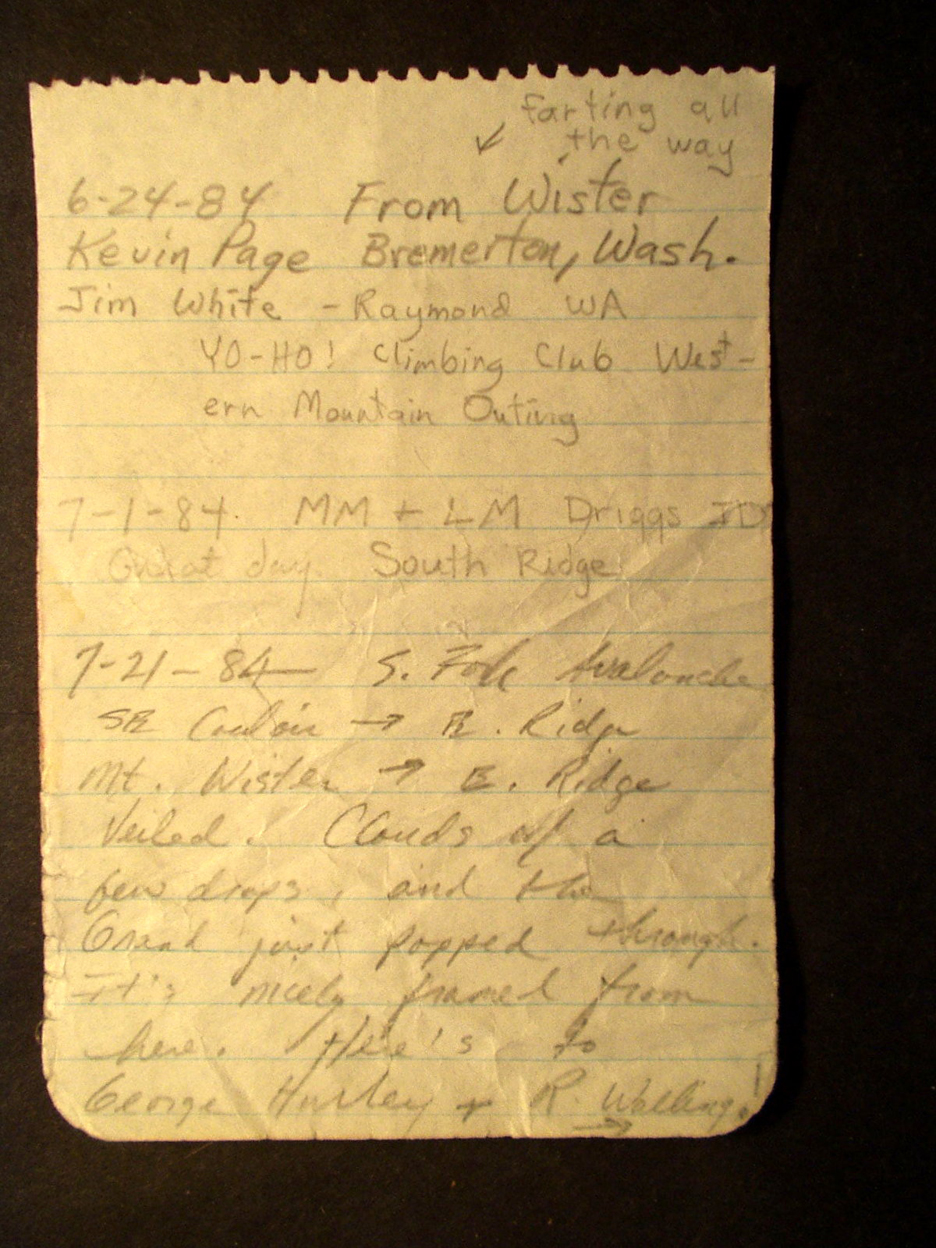 farting all
↙ the way
6-24-84 From Wister
Kevin Page Bremerton, Wash.
Jim White - Raymond WA
YO-HO! Climbing Club West-
ern Mountain Outing
7-1-84. MM + LM Driggs ID
Great day. South Ridge
7-21-84 S. Fork Avalanche
SE Couloir → E. Ridge
Mt. Wister → E. Ridge
Veiled. Clouds w/ a
few drops, and the
Grand just popped through.
It's nicely framed from
here. Here's to
George Hurley + R.
→